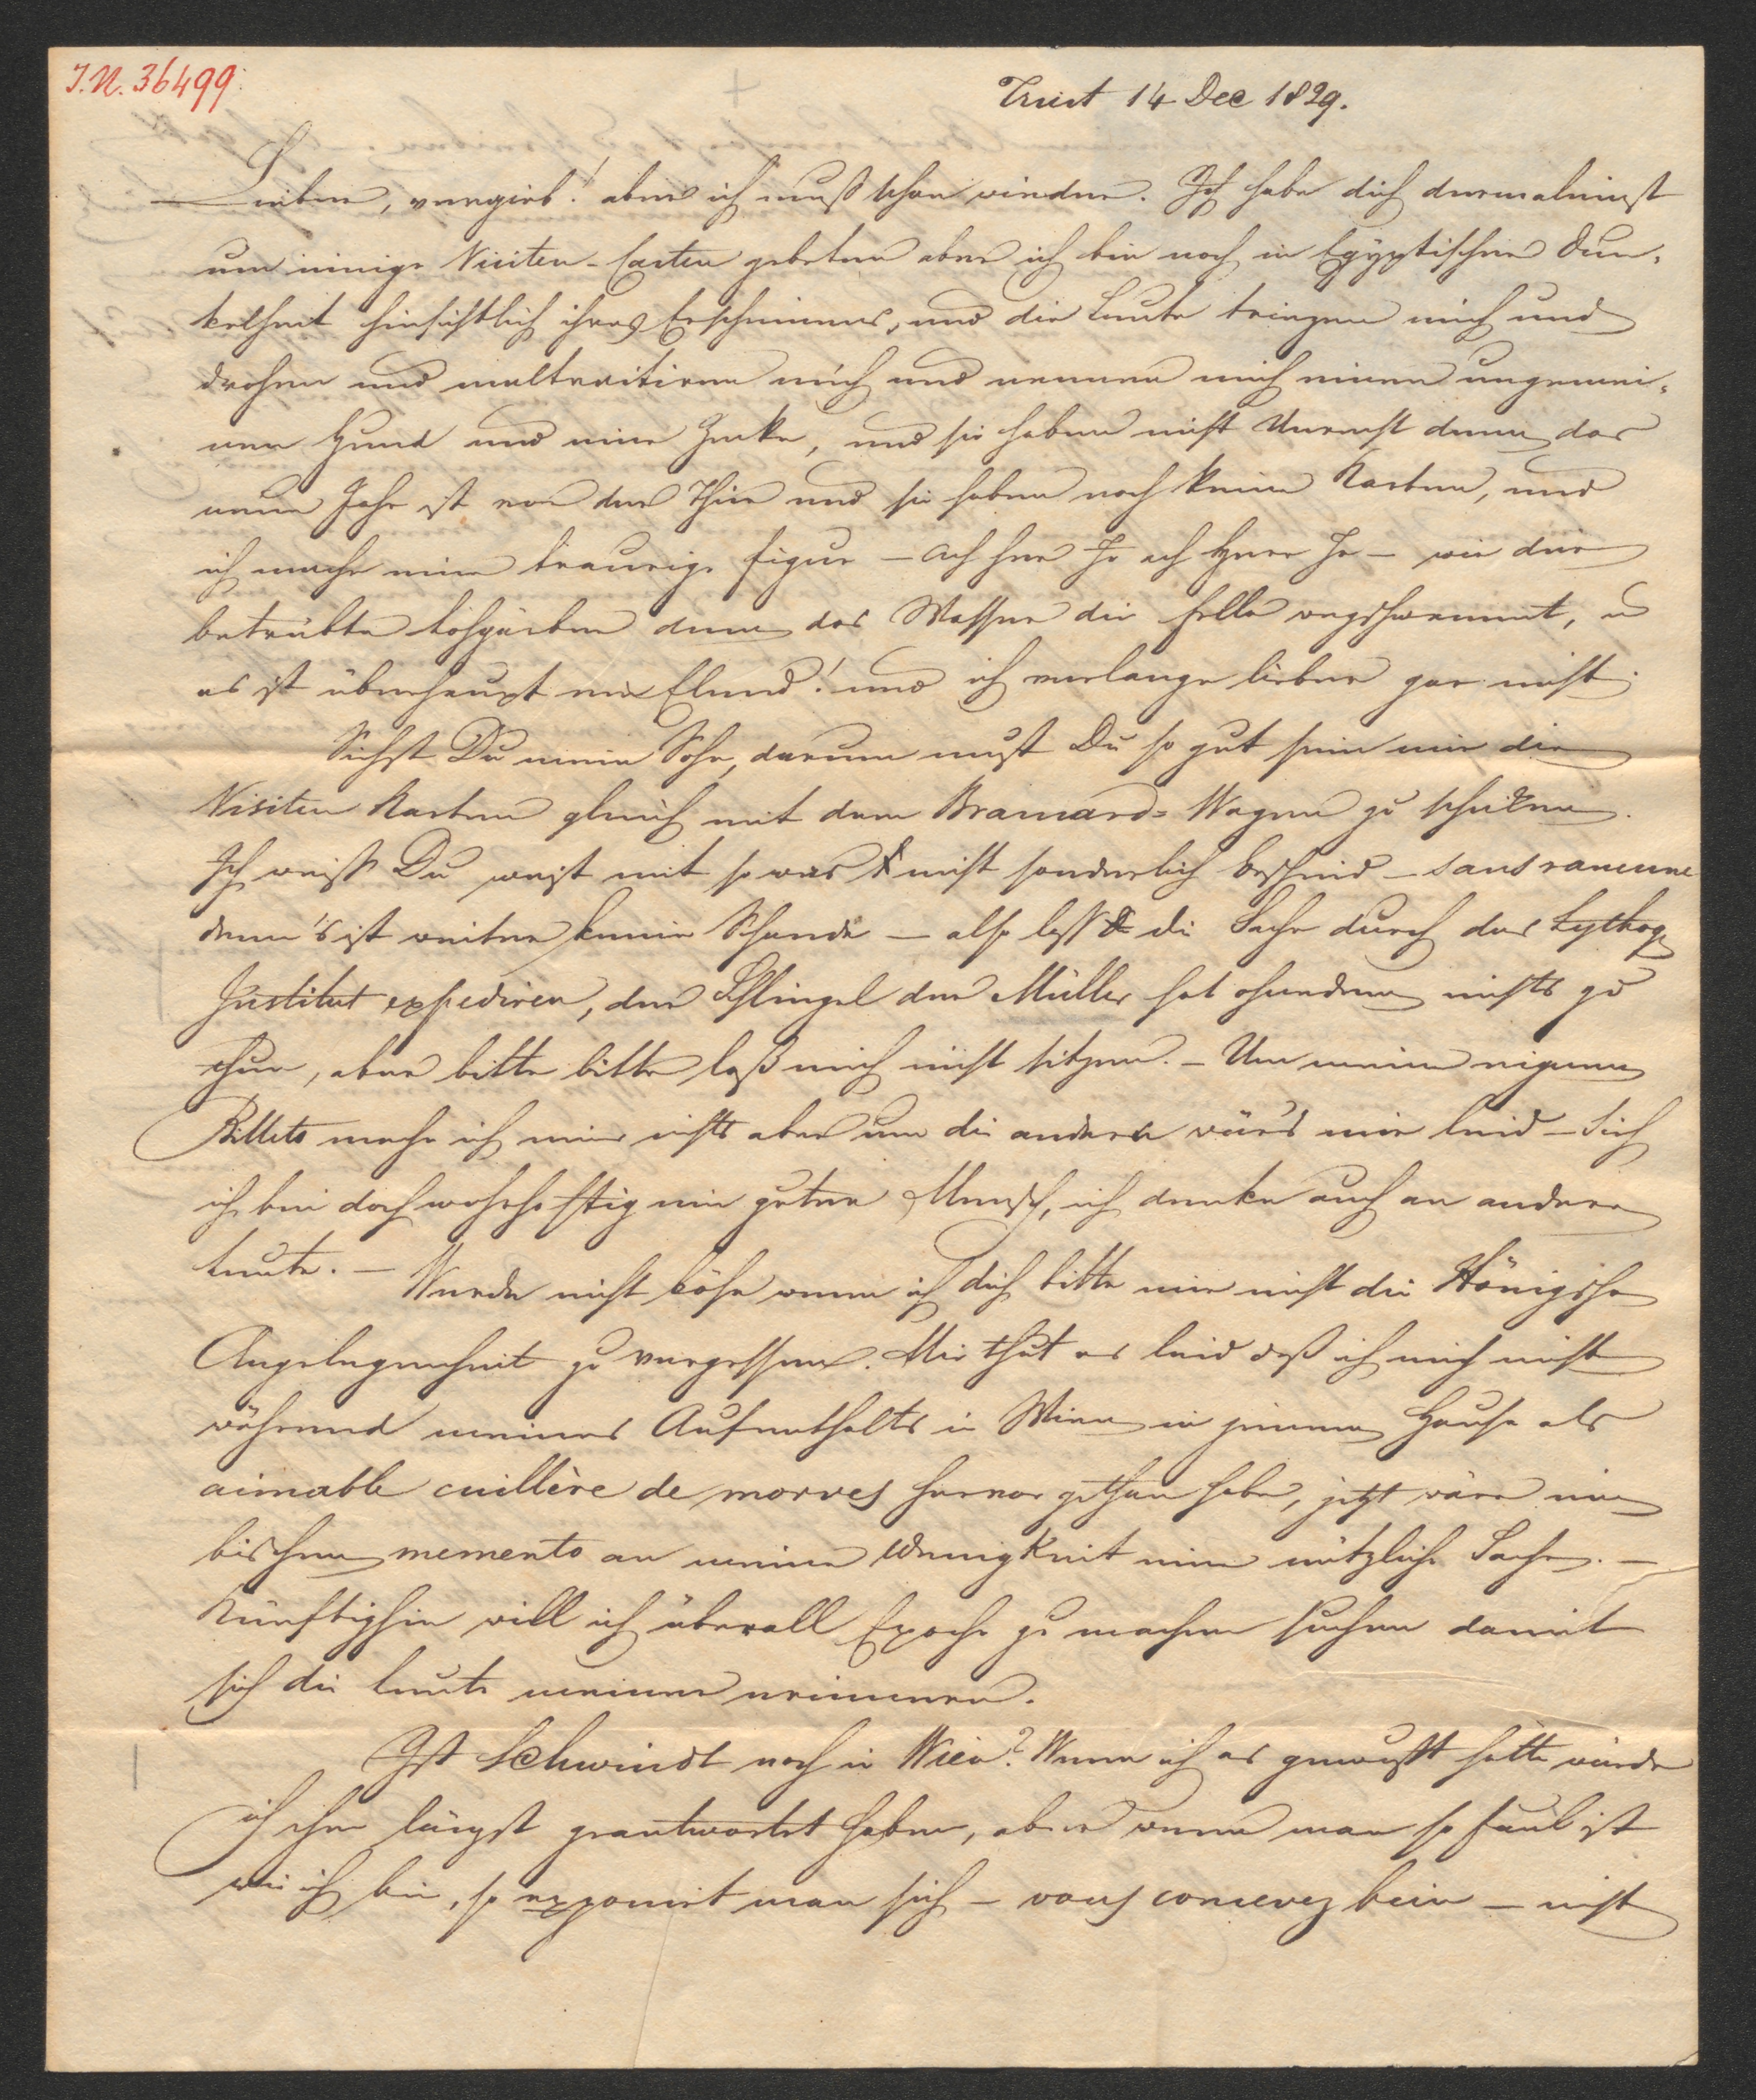 I.N. 36499.
Triest 14 Dec 1829.
Lieber, vergieb! aber ich muß schon wieder. Ich habe dich dermaleinst
um einige Visiten-Carten gebeten aber ich bin noch in Egÿptischer Dun-
kelheit hinsichtlich ihres Erscheinens, und die Leute triezen mich und
drohen und maltraitiren mich und nennen mich einen ungemei-
nen Hund und eine Zecke, und sie haben nicht Unrecht denn das
neue Jahr ist vor der Thür und sie haben noch keine Karten, und
ich mache eine traurige Figur – ach Herr Je ach Herr Je – wie der
betrübte Lohgärber dem das Wasser die Felle wegschwemmt, u
es ist überhaupt ein Elend! und ich verlange lieber gar nicht.
Siehst Du mein Sohn, darum must Du so gut sein mir die
Visiten Karten gleich mit dem Brancard-Wagen zu schicken.
Ich weiß Du weist mit so was nicht sonderlich bescheid – sans rancune
denn 's ist weiter keine Schande – also laß die Sache durch das Lythog
Institut expediren, der Schlingel der Müller hat ohnedem nichts zu
thun, aber bitte bitte laß mich nicht sitzen. – Um meine eigenen
Billets mache ich mir nichts aber um die andern wärs mir leid – Sieh
ich bin doch wahrhaftig ein guter Mensch, ich denke auch an andere
Leute. – Werde nicht böse wenn ich dich bitte mir nicht die Königsche
Angelegenheit zu vergessen. Mir thut es leid daß ich mich nicht
während meines Aufenthalts in Wien in jenem Hause als
aimable cuillère de morves hervor gethan habe, jetzt wäre ein
bischen memento an meine Wenigkeit eine nützliche Sache. –
Künftighin will ich überall Epoche zu machen suchen damit
sich die Leute meiner erinnern.
Ist Schwindt noch in Wien? Wenn ich es gewußt hätte würde
ich ihm längst geantwortet haben, aber wenn man so faul ist
wie ich bin, so exponirt man sich – vous concevez bein – nicht